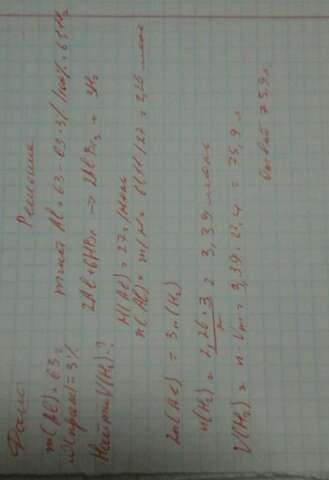 Дано:
Решение
m(Al) = 63 г
W(прим) = 3%
Найти V(H₂) - ?
m чист Al = 63 - 63 · 3% / 100% = 61,11 г
2Al + 6HBr → 2AlBr₃ + 3H₂
M(Al) = 27 г/моль
n(Al) = m/M = 61,11/27 = 2,26 моль
2n(Al) = 3n(H₂)
n(H₂) = 2,26 · 3 / 2 = 3,39 моль
V(H₂) = n · Vm = 3,39 · 22,4 = 75,9 л
Ответ 75,9 л.